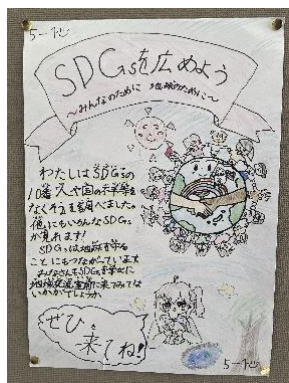 5-1
SDGsを広めよう
～みんなのために 地球のために～
わたしはSDGsの
10番 人や国の不平等を
なくそうを調べました。
他にもいろんなSDGs
が見れます!
SDGsは地球を守る
ことにもつながっています
みなさんもSDGsを学びに
地域交流室前に来てみては
いかがでしょうか
ぜひ
来てね!
5-1